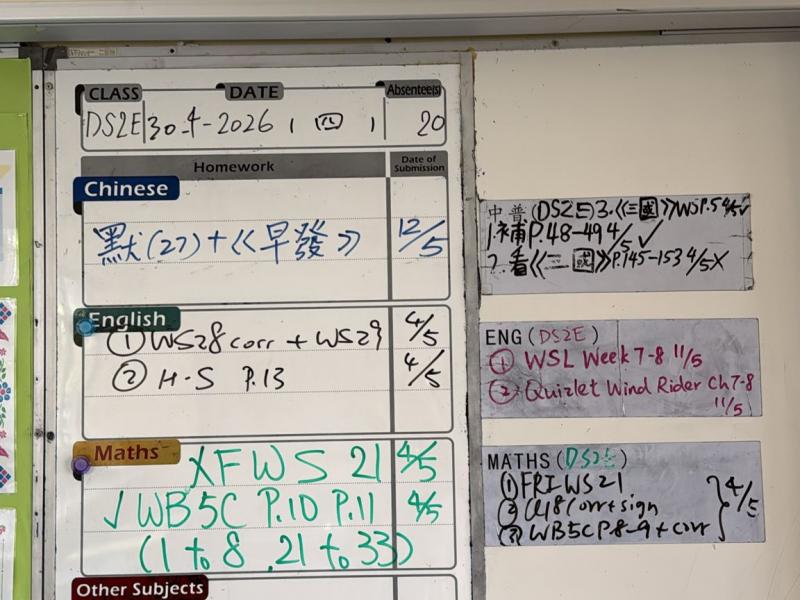 CLASS DATE Absentee(s)
DS2E 30-4-2026 (四) 20
Homework Date of Submission
Chinese
默(27)+《早發》 12/5
English
① WS28 corr + WS29 4/5
② H.S P.13 4/5
Maths
XFWS 21 4/5
✓ WB5C P.10 P.11 4/5
(1 to 8, 21 to 33)
Other Subjects
中普(DS2E) 3.《三國》WSP.5 4/5✓
1.補P.48-49 4/5 ✓
2.看《三國》P.145-153 4/5X
ENG (DS2E)
① WSL Week 7-8 11/5
② Quizlet Wind Rider Ch7-8
11/5
MATHS (DS2E)
① FRI WS21
② corr+sign
③ WB5C P8-9 + corr
4/5